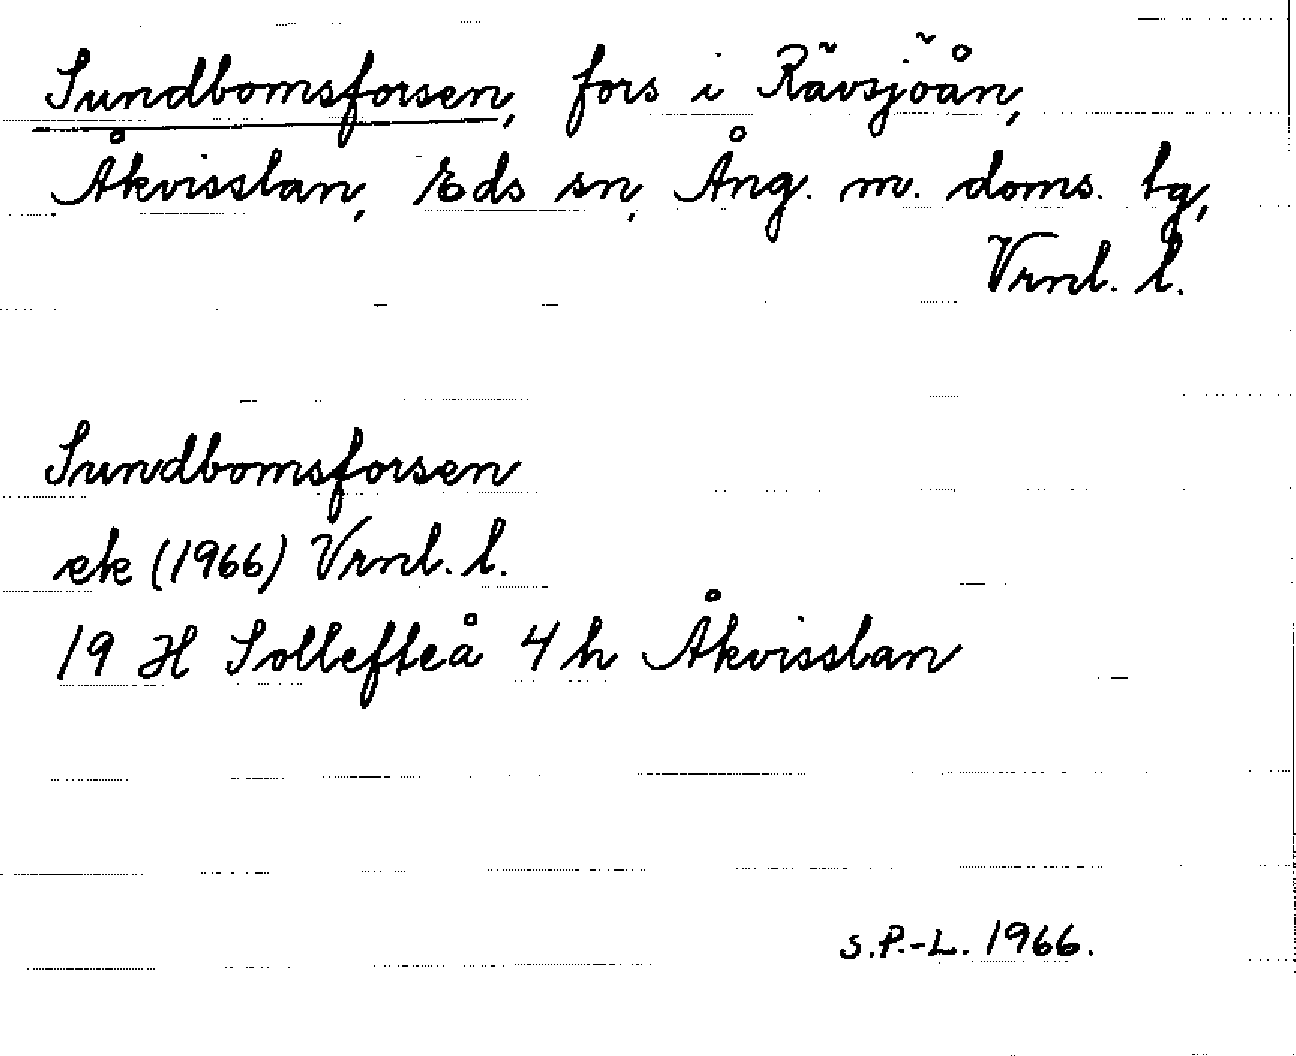 Sundbomsforsen, fors i Rävsjöån,
Åkvisslan, Eds sn, Ång. m. doms. tg,
Vrnl. l.
Sundbomsforsen
ek (1966) Vrnl. l.
19 H Sollefteå 4 h Åkvisslan
S.P.-L. 1966.